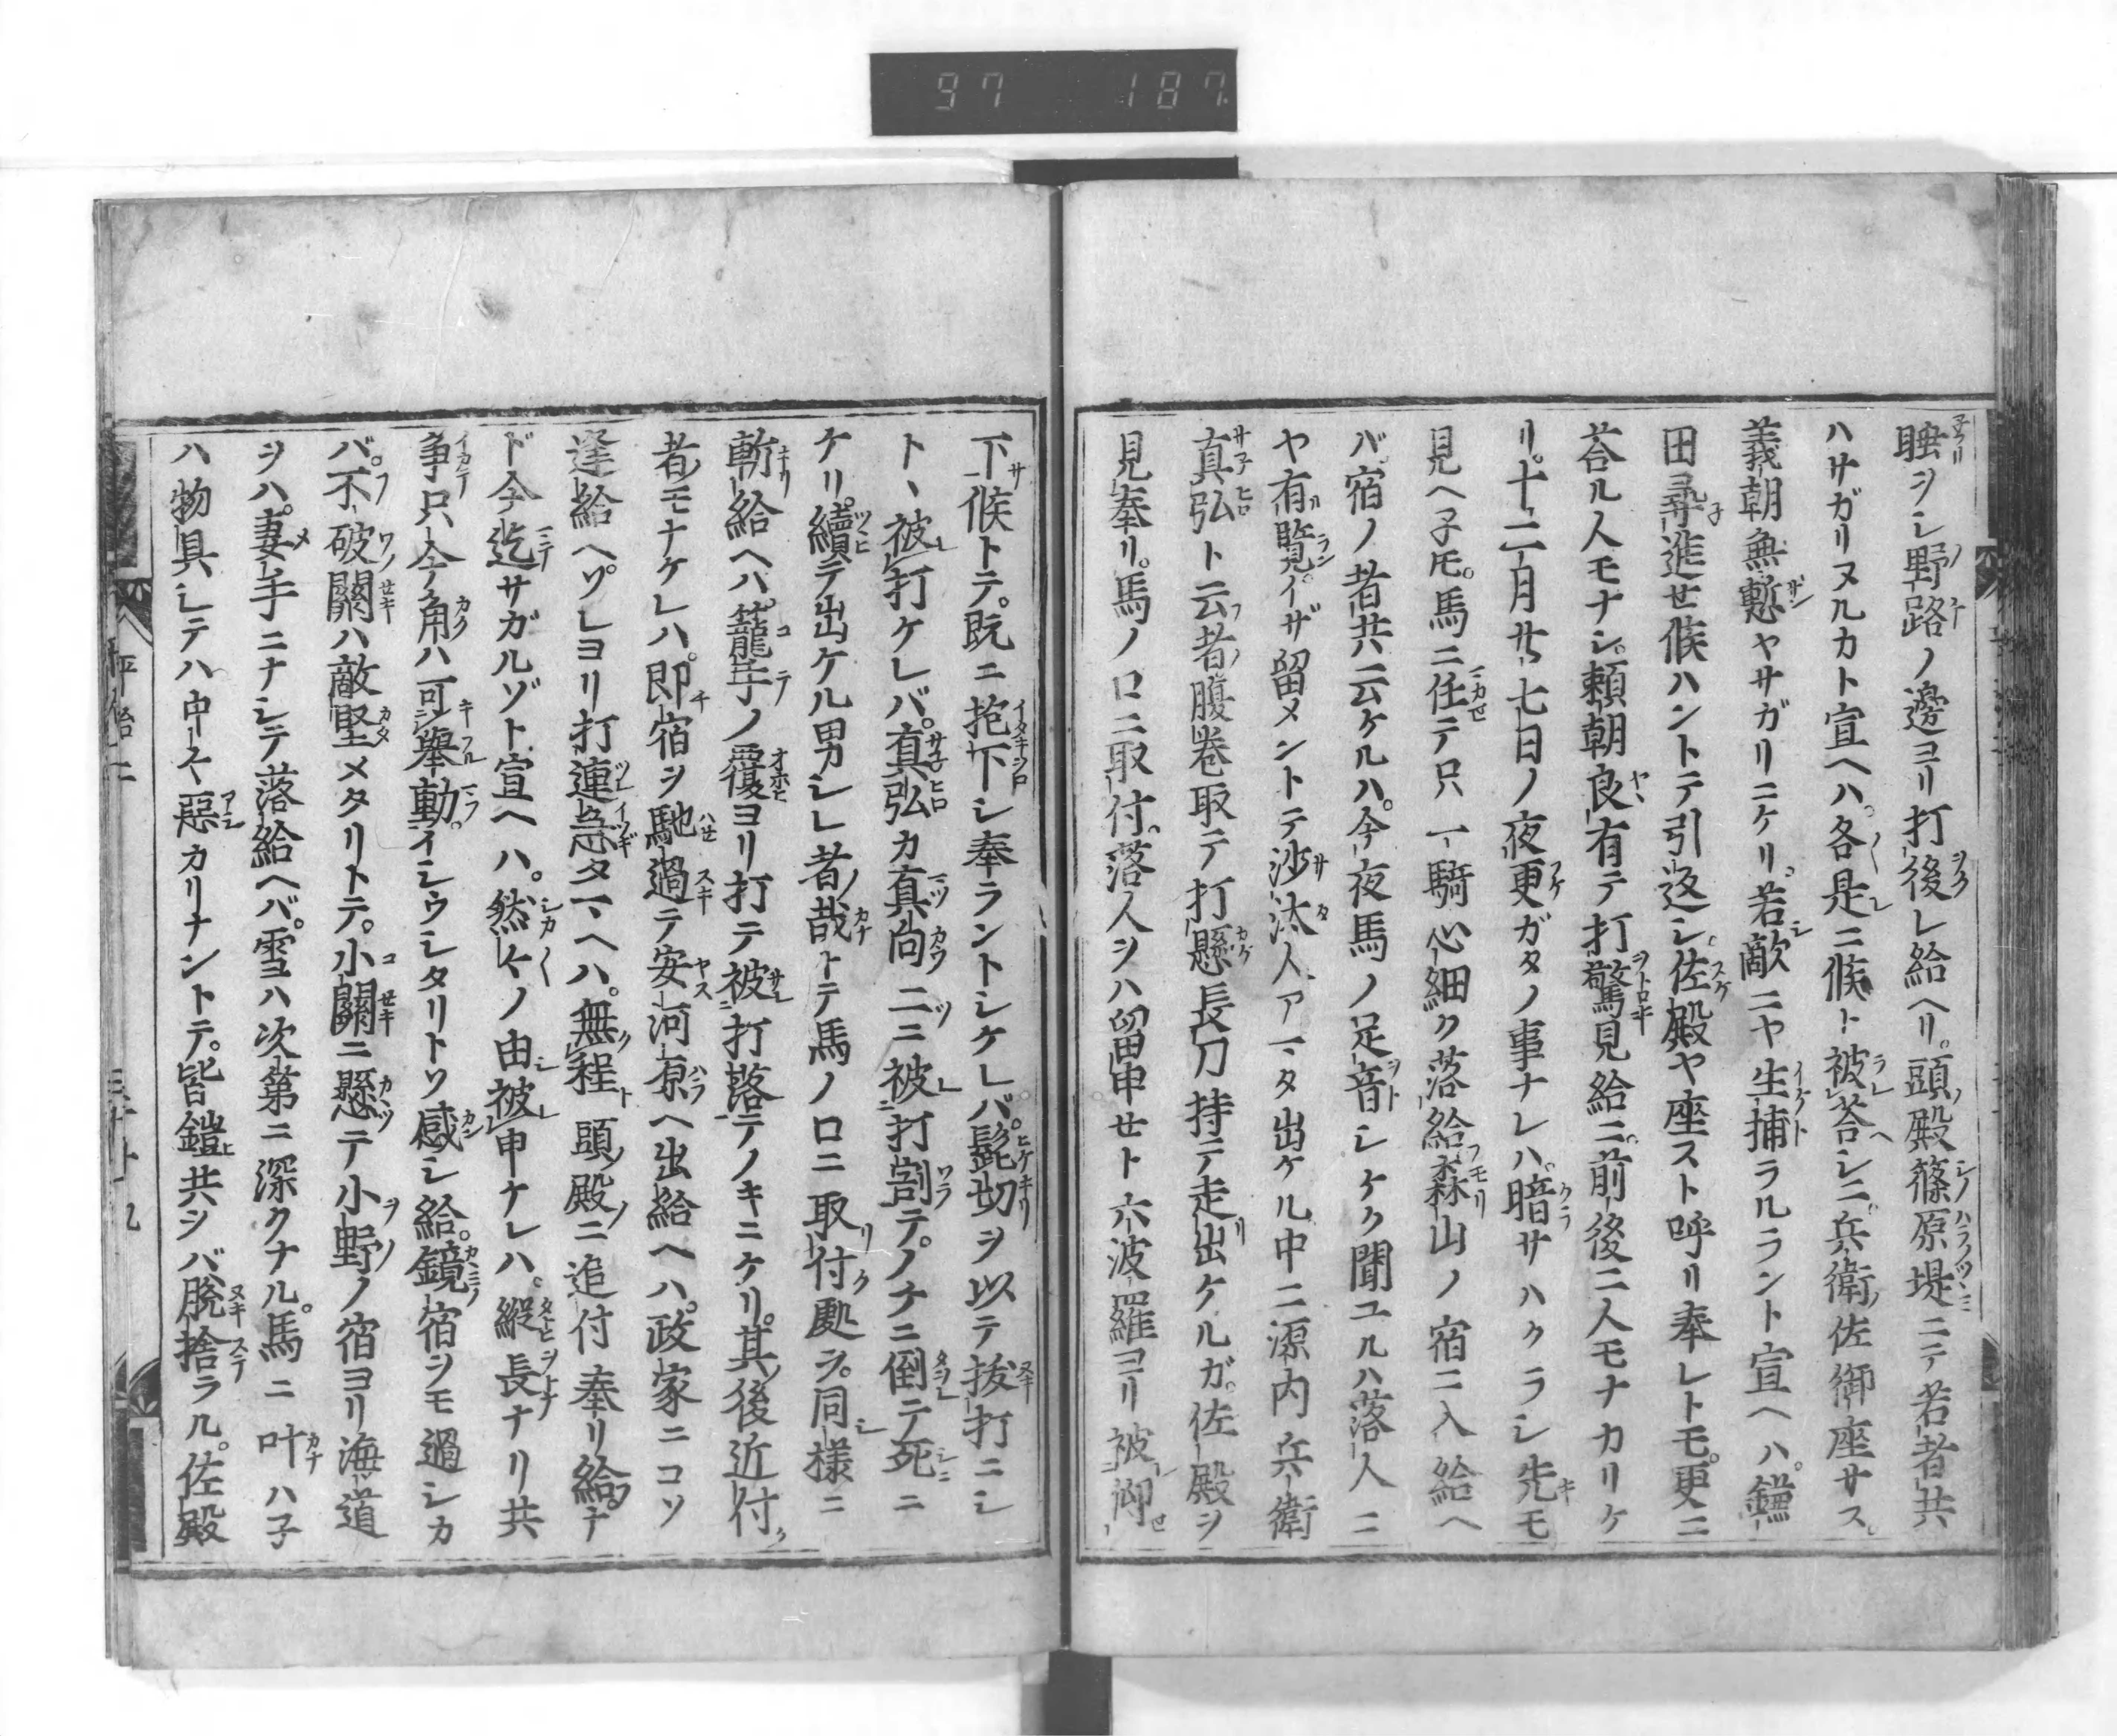 97 187
睡ヲシ野路ノ邊ヨリ打後レ給ヘリ。頭殿篠原堤ニテ若者共
ハサガリヌルカト宣ヘハ。各是ニ候ト被荅シニ。兵衛佐御座サス。
義朝無慙ヤサガリニケリ。若敵ニヤ生捕ラルラント宣ヘハ。鎌
田尋進セ候ハントテ引返シ。佐殿ヤ座スト呼リ奉レトモ。更ニ
荅ル人モナシ。頼朝良有テ打驚見給ニ。前後ニ人モナカリケ
リ。十二月廿七日ノ夜更ガタノ事ナレハ。暗サハクラシ先モ
見ヘ子𪜈。馬ニ任テ只一騎心細ク落給。森山ノ宿ニ入給ヘ
バ。宿ノ者共云ケルハ。今夜馬ノ足音シケク聞ユルハ落人ニ
ヤ有覧。イザ留メントテ沙汰人アマタ出ケル中ニ源内兵衛
真弘ト云者腹巻取テ打懸長刀持テ走出ケルガ。佐殿ヲ
見奉リ。馬ノ口ニ取付。落人ヲハ留申セト六波羅ヨリ被仰
下候トテ。既ニ抱下シ奉ラントシケレバ。髭切ヲ以テ抜打ニシ
トヽ被打ケレバ。真弘カ真向二ニ被打割テ。ノケニ倒テ死ニ
ケリ。續テ出ケル男シレ者哉トテ馬ノ口ニ取付處ヲ。同様ニ
斬給ヘハ。籠手ノ覆ヨリ打テ被打落テノキニケリ。其後近付
者モナケレハ。即宿ヲ馳過テ安河原ヘ出給ヘハ。政家ニコソ
逢給ヘ。ソレヨリ打連急タマヘハ。無程頭殿ニ追付奉リ給。ナ
ド今迄サガルゾト宣ヘハ。然々ノ由被申ナレハ。縦長ナリ共
争只今角ハ可擧動。イシウシタリトソ感シ給。鏡宿ヲモ過シカ
バ。不破關ハ敵堅メタリトテ。小關ニ懸テ小野ノ宿ヨリ海道
ヲハ。妻手ニナシテ落給ヘバ。雪ハ次第ニ深クナル。馬ニ叶ハ子
ハ物具シテハ中々惡カリナントテ。皆鎧共ヲバ脱捨ラル。佐殿